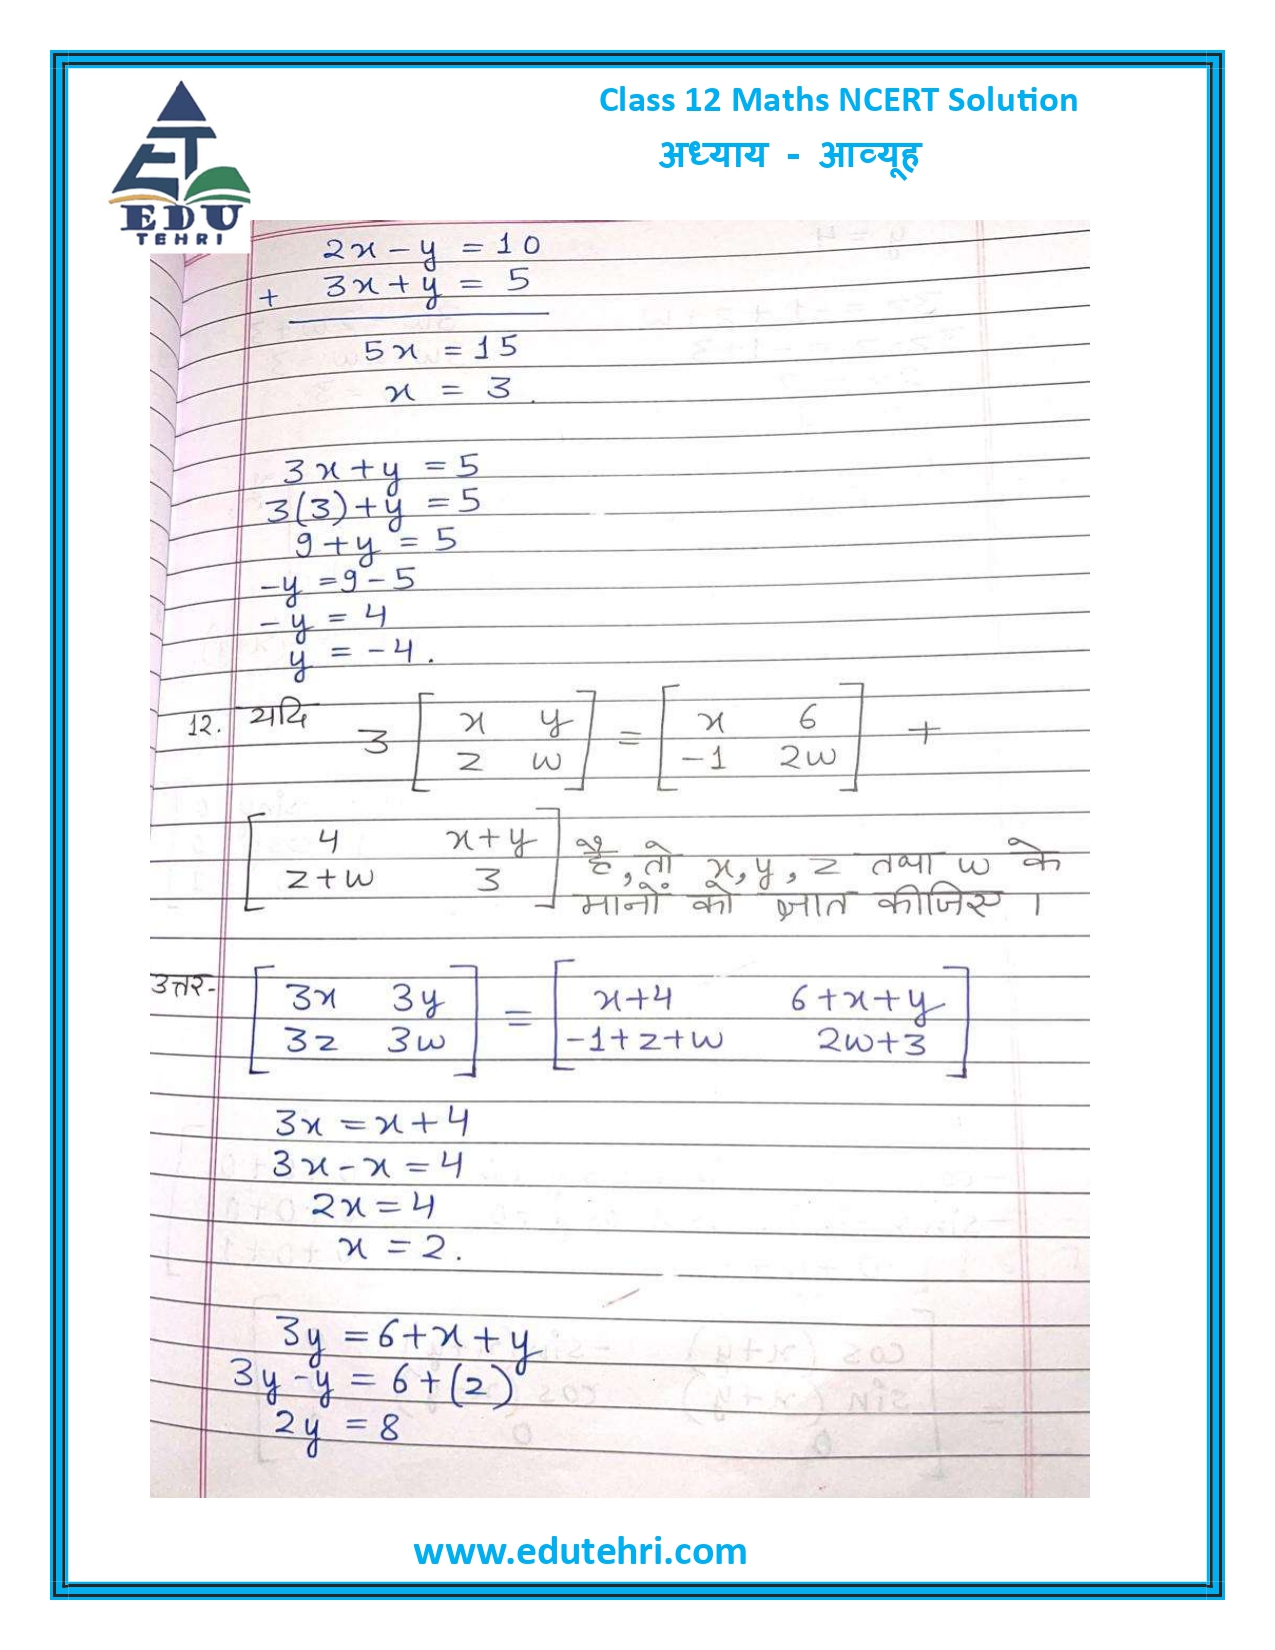 Class 12 Maths NCERT Solution
अध्याय - आव्यूह
EDU
TEHRI
2x - y = 10
+ 3x + y = 5
5x = 15
x = 3.
3x + y = 5
3(3) + y = 5
9 + y = 5
-y = 9 - 5
-y = 4
y = -4.
12. यदि 3 [x y = [x 6 +
z w] -1 2w]
[4 x+y
z+w 3] है, तो x, y, z तथा w के
मानों को ज्ञात कीजिए ।
उत्तर- [3x 3y = [x+4 6+x+y
3z 3w] -1+z+w 2w+3]
3x = x + 4
3x - x = 4
2x = 4
x = 2.
3y = 6 + x + y
3y - y = 6 + (2)
2y = 8
www.edutehri.com